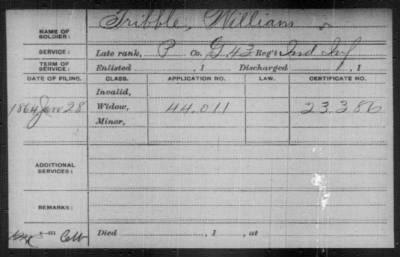 NAME OF SOLDIER: Tribble, William
SERVICE: Late rank, P Co. G, 43 Reg't Ind Inf
TERM OF SERVICE: Enlisted , 1 Discharged , 1
DATE OF FILING. CLASS. APPLICATION NO. LAW. CERTIFICATE NO.
Invalid,
1864 Jan 28 Widow, 44.011 23.386
Minor,
ADDITIONAL SERVICES:
REMARKS:
Died , 1 , at